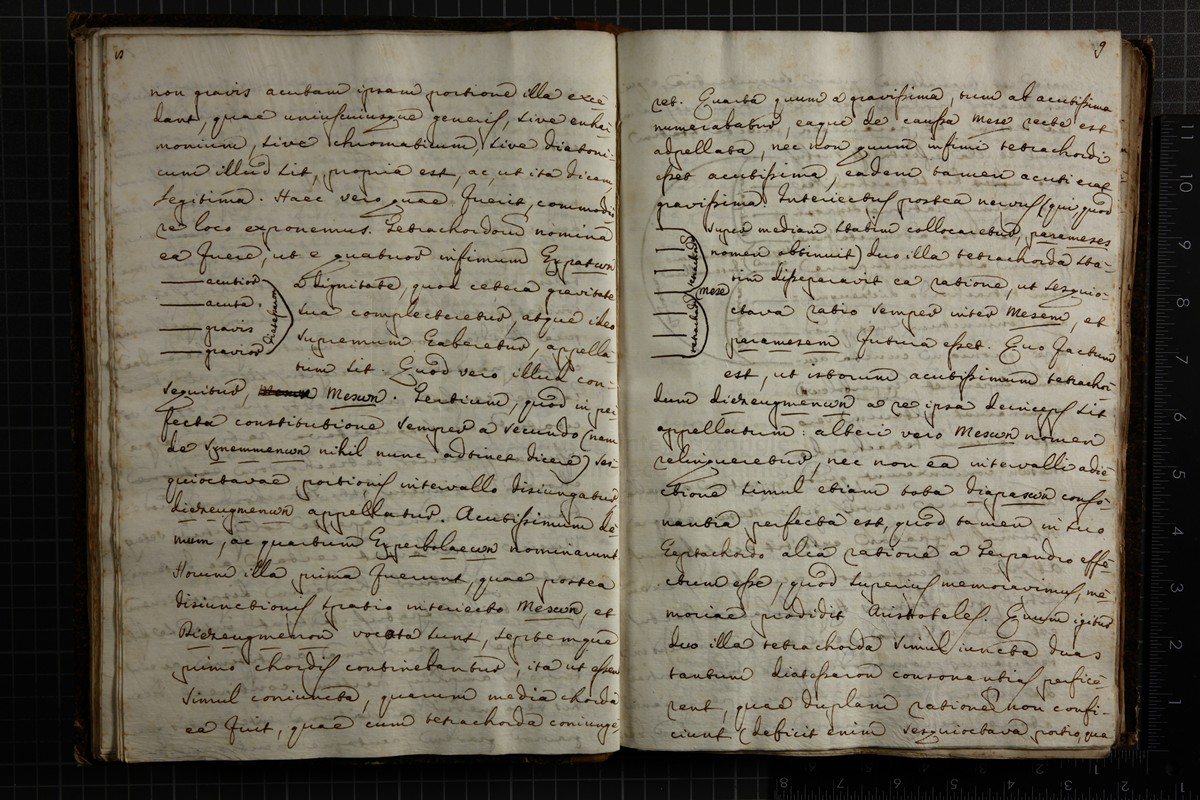 non gravis acutam ipsam portione illa exce
dant, quae uniuscuiusque generis, sive enhar
monium, sive chromaticum, sive diatoni-
cum illud sit, propria est, ac, ut ita dicam,
legitima. Haec vero quae fuerit, commodio
re loco exponemus. Tetrachordorum nomina
ea fuere, ut e quatuor infimum Hypaton
acutior
acuta.
gravis
gravior
diatessaron
a dignitate, quod cetera gravitate
sua complecteretur, atque ideo
supremum haberetur, appella
tum sit. Quod vero illud con-
sequitur, Meson. Tertium, quod in per
fecta constitutione semper a secundo (nam
de Synemmenon nihil nunc adtinet dicere) ses
quioctavae portionis intervallo disiungatur
diezeugmenon appellatur. Acutissimum de
mum, ac quartum Hyperbolaeon nominarunt
Horum illa prima fuerunt, quae postea
disiunctionis spatio interiecto Meson, et
Diezeugmenon vocata sunt, septemque
primo chordis continebantur, ita ut essent
simul coniuncta, quorum media chorda
ea fuit, quae cum tetrachorda coniunge
9
ret. Quarta quum a gravissima, tum ab acutissima
numerabatur, eaque de caussa Mese recte est
adpellata, nec non quum infimi tetrachordi
esset acutissima, eadem tamen acuti erat
gravissima. Interiectus postea nervus (qui, quod
super mediam statim collocaretur, parameses
nomen obtinuit) duo illa tetrachorda sta-
tim disseparavit ea ratione, ut sesquio-
ctava ratio semper inter Mesem, et
paramesem futura esset. Quo factum
tetrachord
mese
tetrachord
est, ut istorum acutissimum tetrachor
dum diezeugmenon a re ipsa deinceps sit
appellatum: alteri vero Meson nomen
relinqueretur, nec non ea intervalli adie
ctione simul etiam tota diapason conso-
nantia perfecta est, quod tamen in suo
Heptachordo alia ratione a Terpandro effe
ctum esse, quod superius memoravimus, me
moriae prodidit Aristoteles. Quum igitur
duo illa tetrachorda simul iuncta duas
tantum diatessaron consonantias perfice-
rent, quae duplam rationem non confi-
ciunt (deficit enim sesquioctava portio, qua